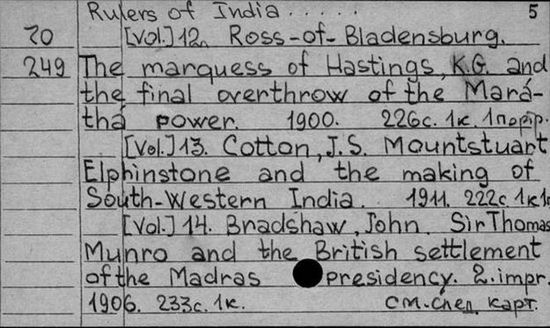 Rulers of India ..... 5
20 [Vol.] 12. Ross-of-Bladensburg.
249 The marquess of Hastings, K.G. and
the final overthrow of the Mará-
thá power. 1900. 226с. 1к. 1портр.
[Vol.] 13. Cotton, J.S. Mountstuart
Elphinstone and the making of
South-Western India. 1911. 222с. 1к
[Vol.] 14. Bradshaw, John. Sir Thomas
Munro and the British settlement
of the Madras presidency. 2. impr.
1906. 233с. 1к. см. след. карт.